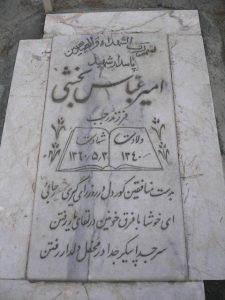 بسم رب الشهداء و الصدیقین
پاسدار شهید
امیر عباس بخشی
فرزند رجب
ولادت شهادت
۱۳۴۰ ۱۳۶۰/۵/۳
بدست منافقین کوردل در روز
ای خوشا با فرق خونین در لقای یار رفتن
سر جدا پیکر جدا در محفل دلدار رفتن